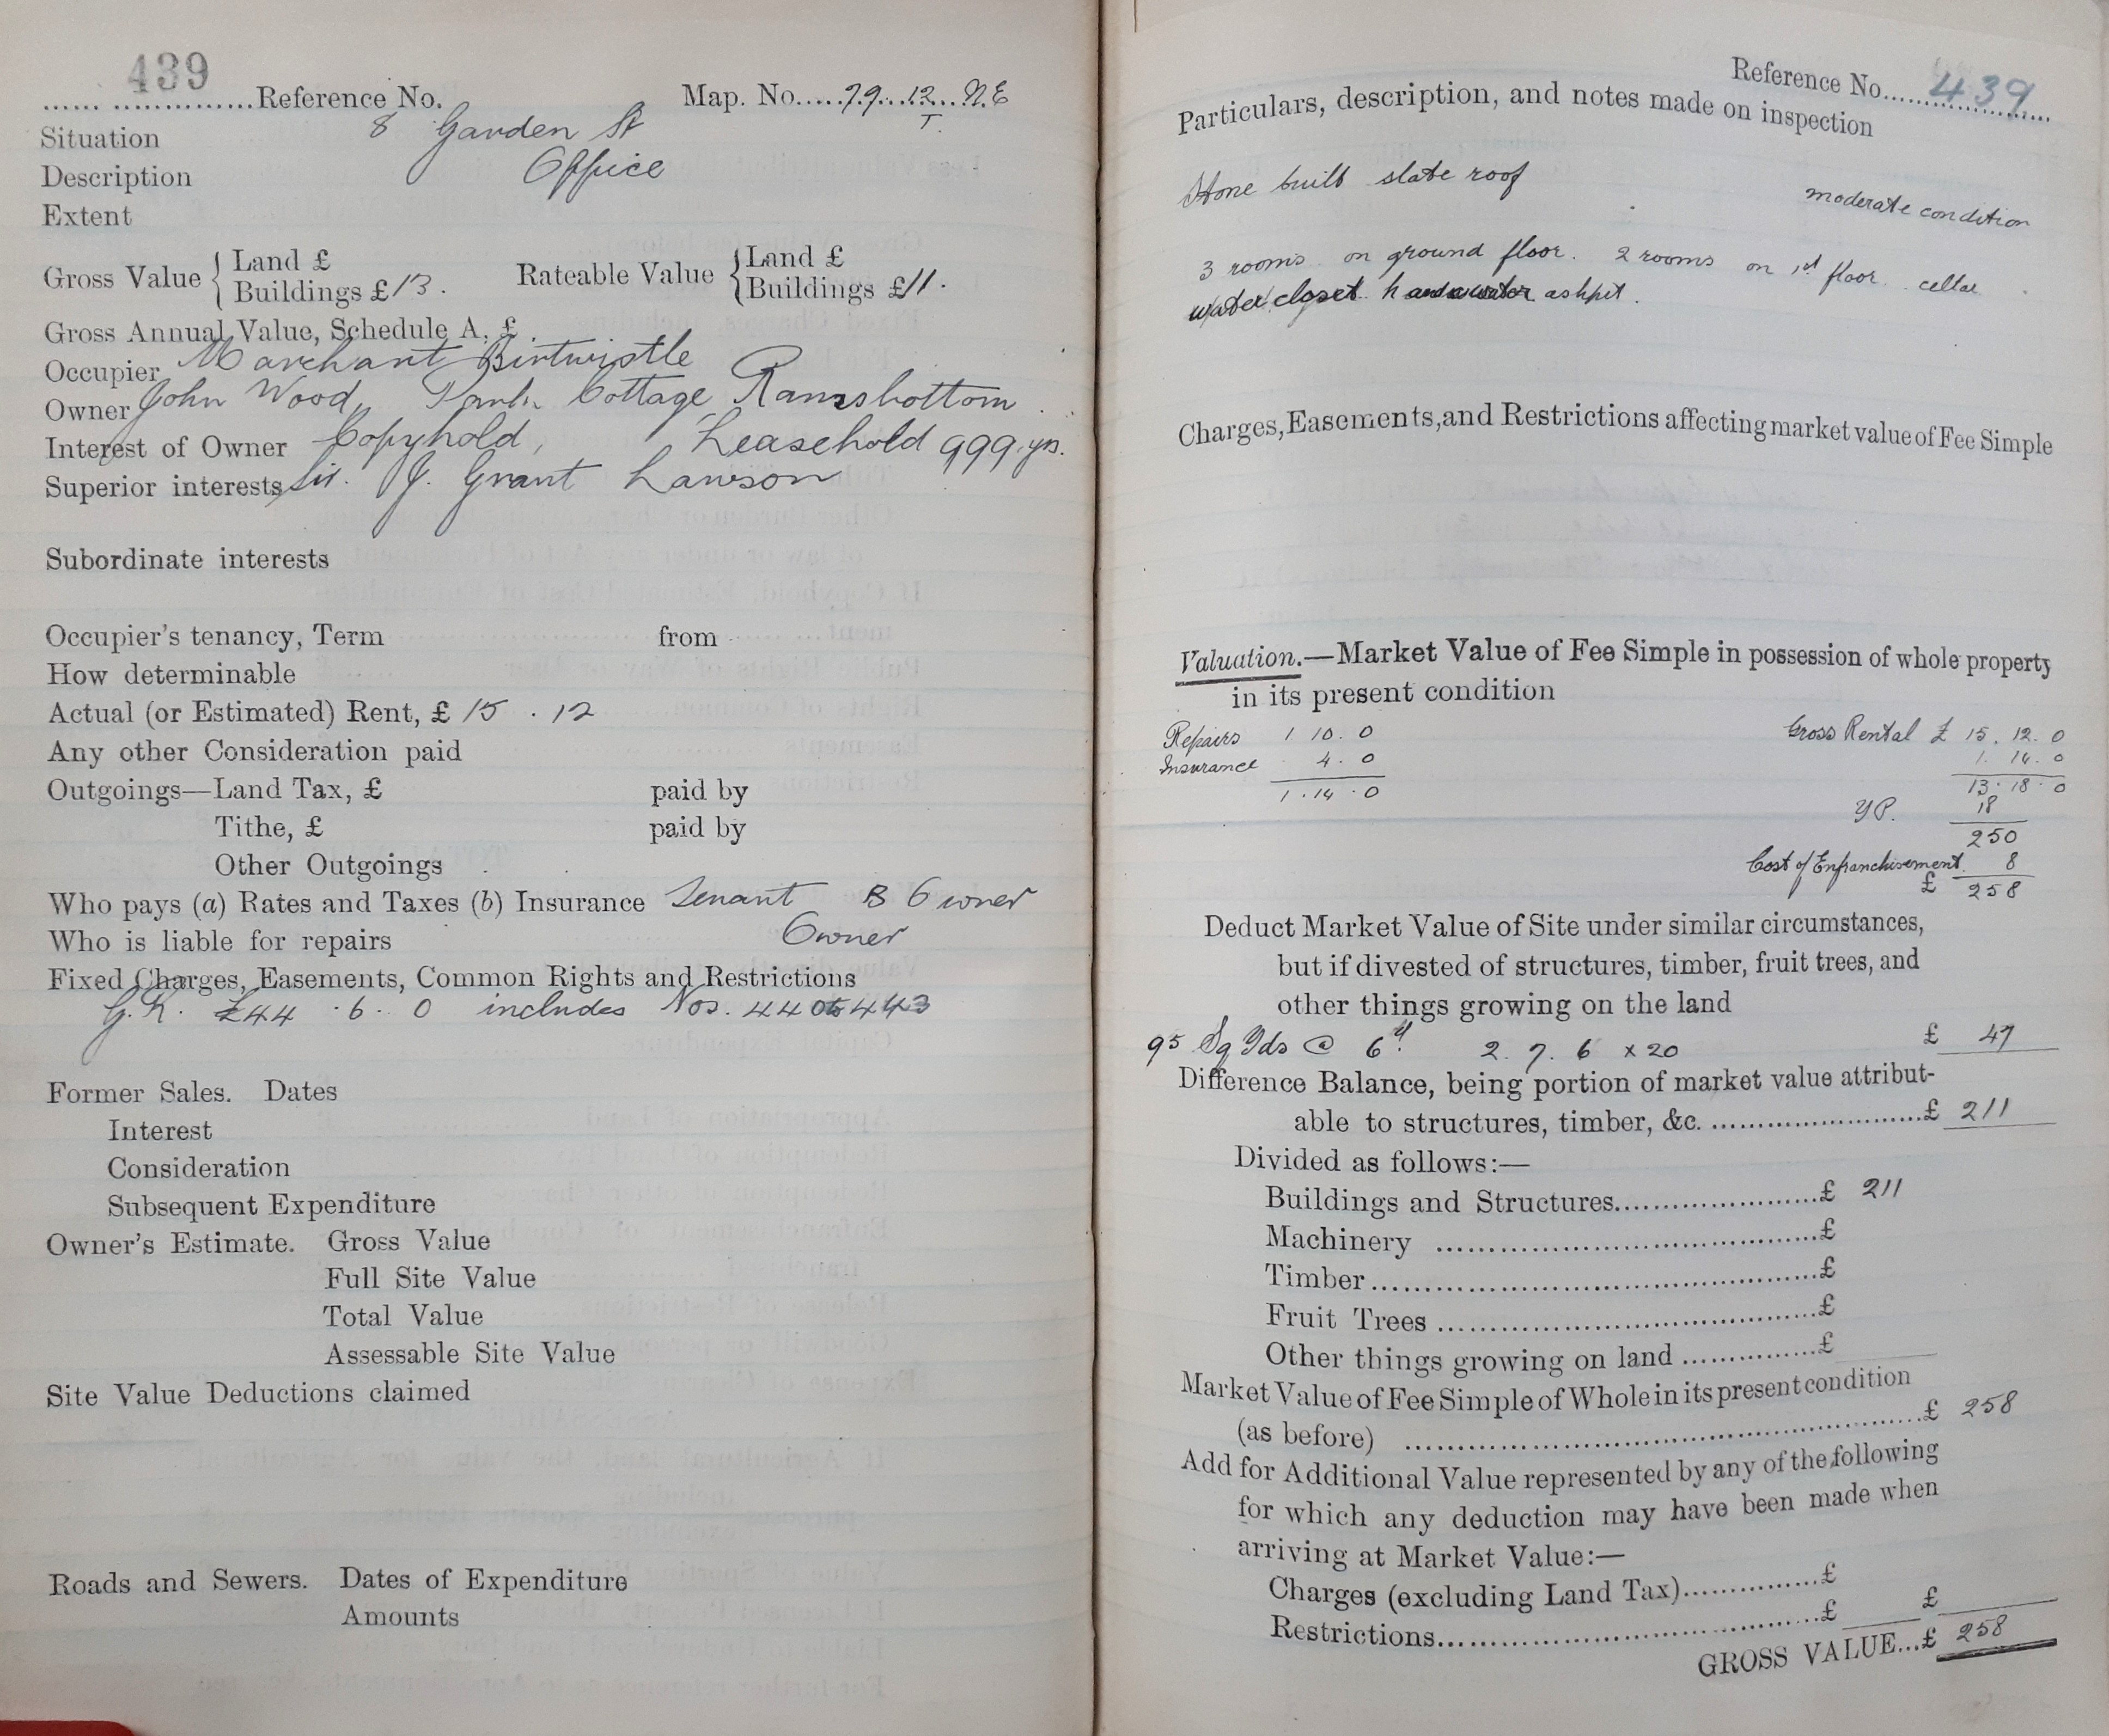 439
Reference No. Map. No. 79. 12. N.E
T.
Situation 8 Garden St
Description Office
Extent
Gross Value { Land £ Rateable Value { Land £
Buildings £13. Buildings £11.
Gross Annual Value, Schedule A, £
Occupier Marchant Birtwistle
Owner John Wood, Cottage Ramsbottom
Interest of Owner Copyhold, Leasehold 999 yrs.
Superior interests Sir. J. Grant Lawson
Subordinate interests
Occupier's tenancy, Term from
How determinable
Actual (or Estimated) Rent, £ 15 . 12
Any other Consideration paid
Outgoings—Land Tax, £ paid by
Tithe, £ paid by
Other Outgoings
Who pays (a) Rates and Taxes (b) Insurance Tenant B Owner
Who is liable for repairs Owner
Fixed Charges, Easements, Common Rights and Restrictions
G.R. £44 . 6 . 0 includes Nos. 440 to 443
Former Sales. Dates
Interest
Consideration
Subsequent Expenditure
Owner's Estimate. Gross Value
Full Site Value
Total Value
Assessable Site Value
Site Value Deductions claimed
Roads and Sewers. Dates of Expenditure
Amounts
Reference No. 439
Particulars, description, and notes made on inspection
Stone built slate roof moderate condition
3 rooms on ground floor. 2 rooms on 1st floor. cellar
water closet ashpit.
Charges, Easements, and Restrictions affecting market value of Fee Simple
Valuation.—Market Value of Fee Simple in possession of whole property
in its present condition
Repairs 1 10. 0 Gross Rental £ 15. 12. 0
Insurance 4. 0 1. 14. 0
1. 14. 0 13. 18. 0
YP. 18
250
Cost of Enfranchisement 8
£ 258
Deduct Market Value of Site under similar circumstances,
but if divested of structures, timber, fruit trees, and
other things growing on the land
95 Sq Yds @ 6d. 2. 7. 6 x 20 £ 47
Difference Balance, being portion of market value attribut-
able to structures, timber, &c. £ 211
Divided as follows:—
Buildings and Structures £ 211
Machinery £
Timber £
Fruit Trees £
Other things growing on land £
Market Value of Fee Simple of Whole in its present condition
(as before) £ 258
Add for Additional Value represented by any of the following
for which any deduction may have been made when
arriving at Market Value:—
Charges (excluding Land Tax) £
Restrictions £ £
GROSS VALUE...£ 258